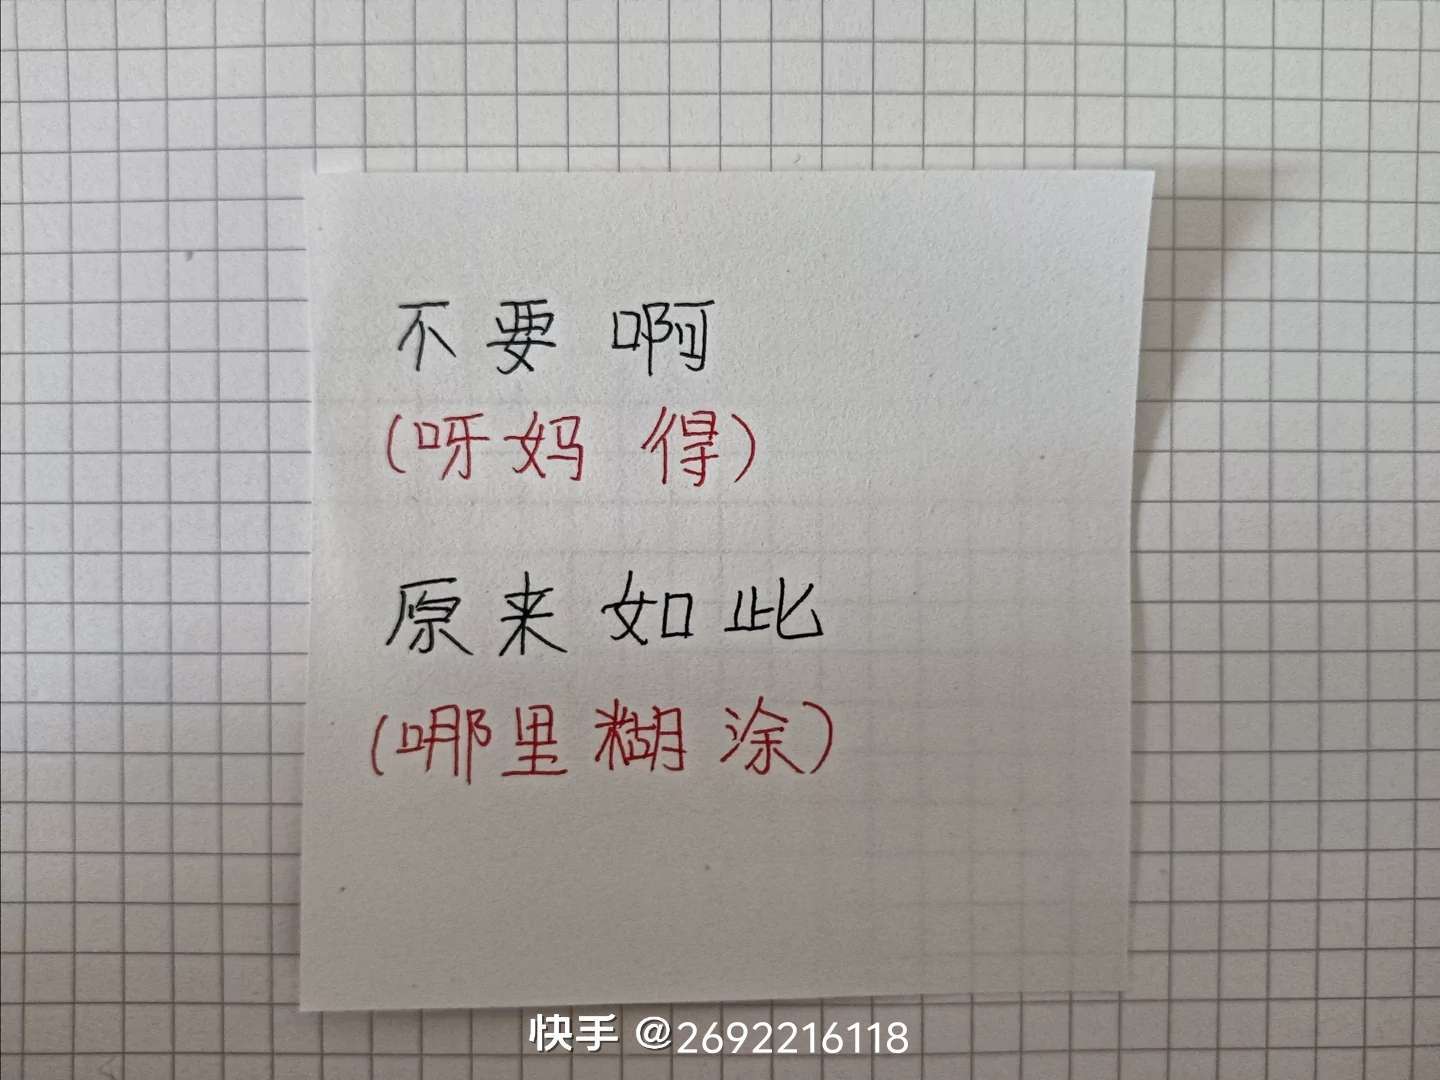 不要啊
(呀妈得)
原来如此
(哪里糊涂)
快手 @2692216118